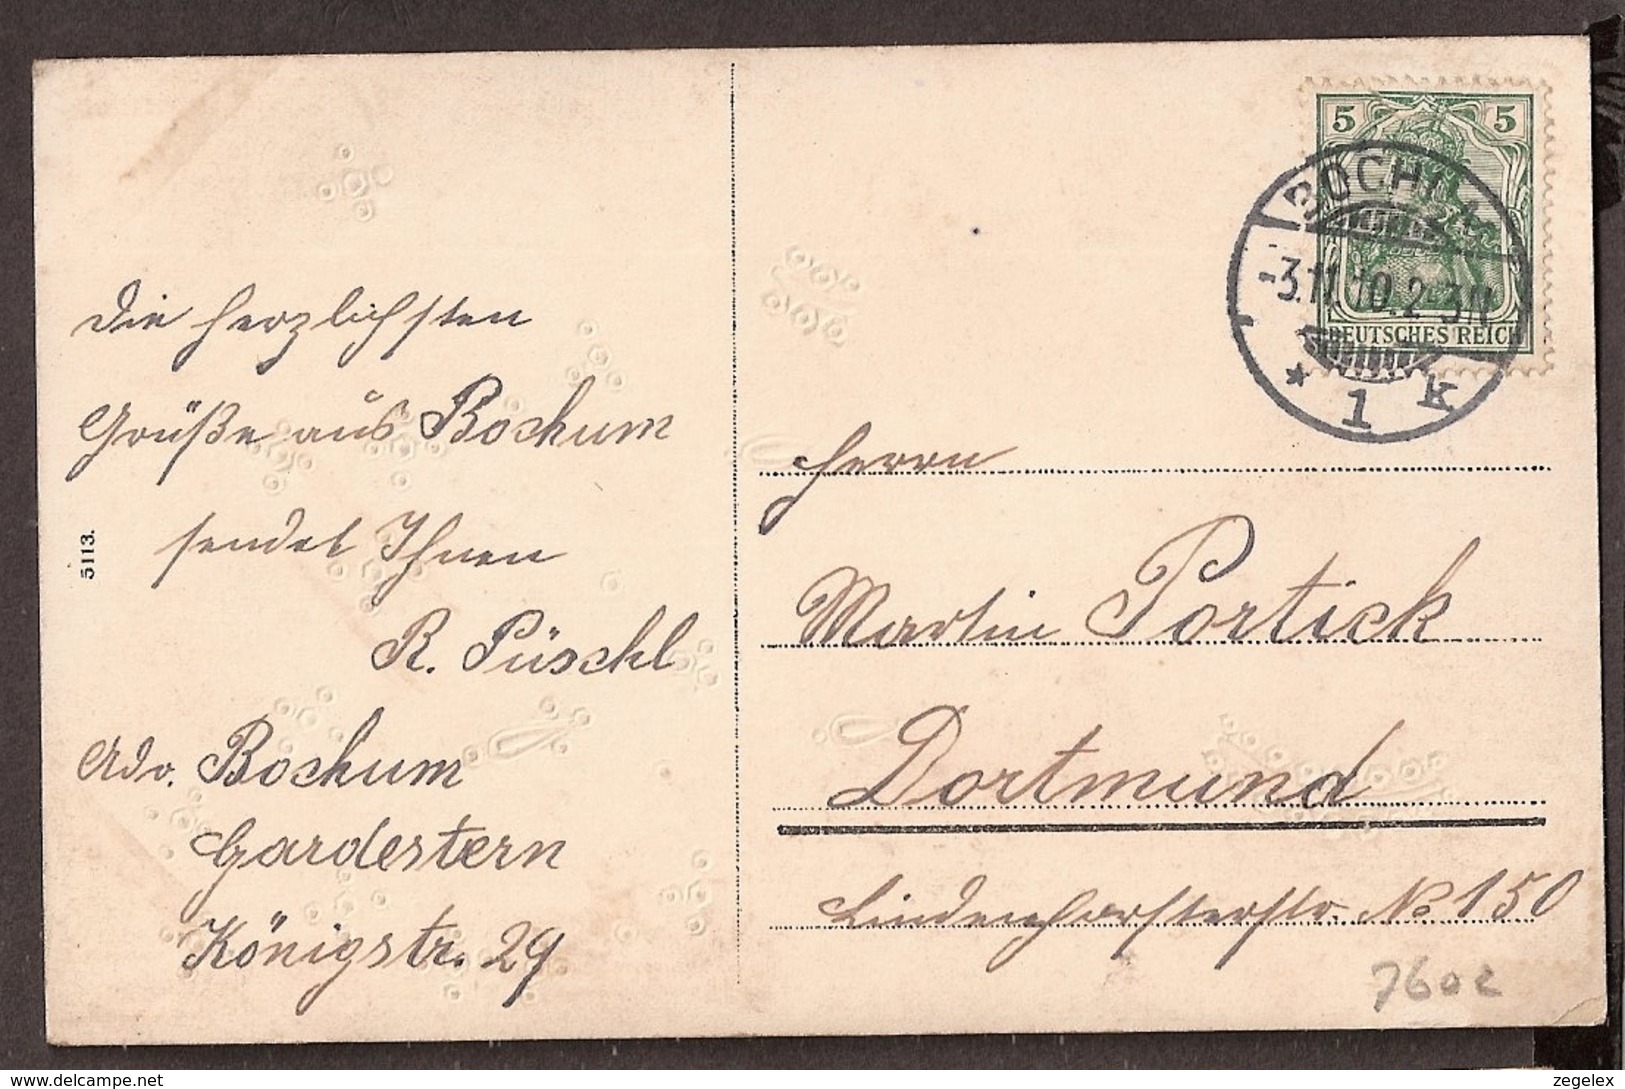 Die herzlichsten
Grüße aus Bochum
sendet Ihnen
R. Püschl
Adr. Bochum
Gardestern
Königstr. 29
5113.
5 5
DEUTSCHES REICH
BOCHUM
-3.11.10.2-3N
* 1 k
Herrn
Martin Portick
Dortmund
Lindenhorsterstr. No 150
7602
delcampe.net
zegelex